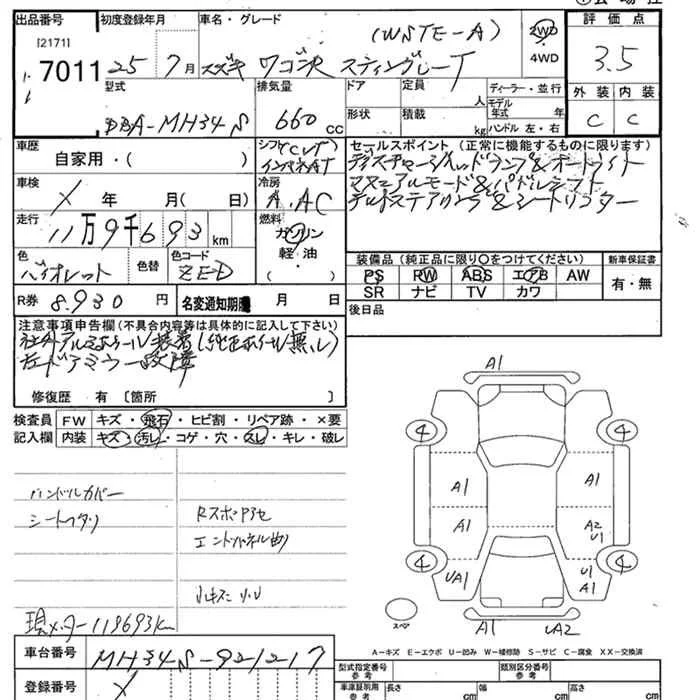 出品番号 初度登録年月 車名・グレード 評価点
[2171]
7011 25年 7月 スズキ ワゴンR スティングレー T (WSTE-A) 2WD・4WD 3.5
型式 排気量 ドア 定員 人 ディーラー・並行 外装 内装
DBA-MH34S 660cc 形状 積載 kg モデル年式 年 C C
ハンドル 左・右
車歴 シフト(CVT) セールスポイント(正常に機能するものに限ります)
自家用・( ) インパネAT ディスチャージヘッドランプ&オートライト
車検 冷房 マニュアルモード&パドルシフト
X 年 月( 日) A.AC チルトステアリング&シートリフター
走行 燃料
11万9千693km ガソリン
軽・油
( )
色 色替 色コード 装備品(純正品に限り○をつけてください) 新車保証書
バイオレット ZED PS PW ABS エアB AW 有・無
SR ナビ TV カワ
R券 8.930円 名変通知期限 月 日 後日品
注意事項申告欄(不具合内容等は具体的に記入して下さい)
社外アルミホイール装着(純正ホイール無し)
左ドアミラー故障
修復歴 有 [箇所 ]
検査員 FW キズ・飛石・ヒビ割・リペア跡・×要
記入欄 内装 キズ・汚レ・コゲ・穴・スレ・キレ・破レ
A1
4 4
A1 A1
A1 A2
U1
UA1 U1
A1
4 4
A1 UA2
ハンドルカバー
シートヘタリ
エンドパネル曲
現メーター119693km
A-キズ E-エクボ U-凹み W-補修跡 S-サビ C-腐食 XX-交換済
車台番号 MH34S-921217
登録番号 X
型式指定番号 参考 類別区分番号 参考
車庫証明用 参考 長さ cm 幅 cm 高さ cm